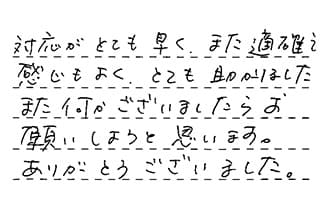 対応がとても早く、また適確で
感じもよく、とても助かりました
また何かございましたらお
願いしようと思います。
ありがとうございました。